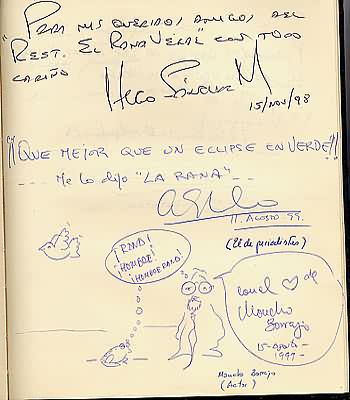 "Para mis queridos amigos del
Rest. El Rana Verde" con todo
cariño
Hugo Sánchez M
15/nov/98
¡¡Que mejor que un eclipse en verde!!
--- Me lo dijo "La Rana"---
11. Agosto 99.
(El de periodistas)
¡Rana!
¡Hombre!
¡Hombre rana!
con el ♡ de
Moncho
Borrajo
15-agosto-
1999-
Moncho Borrajo
(Actor)